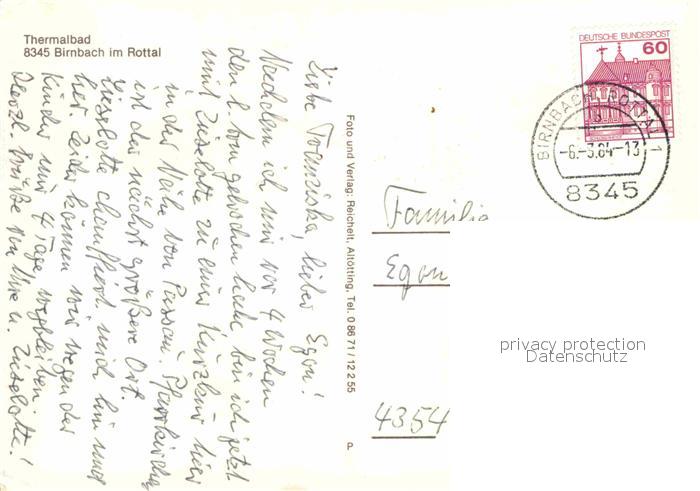 Thermalbad
8345 Birnbach im Rottal
Liebe Franziska, lieber Egon!
Nachdem ich mir vor 4 Wochen
den l. Arm gebrochen habe bin ich jetzt
mit Liselotte zu einer Kurzkur hier
in der Nähe von Passau. Pfarrkirchen
ist der nächst größere Ort.
Liselotte chauffiert mich hin und
her. Leider können wir wegen der
Kinder nur 4 Tage wegbleiben.
Herzl. Grüße von Uwe u. Liselotte!
Foto und Verlag: Reichelt, Altötting, Tel. 0 86 71 / 12 2 55
P
DEUTSCHE BUNDESPOST
60
BIRNBACH, ROTTAL 1
-6.-3.84-13
8345
Familie
Egon
4354
privacy protection
Datenschutz